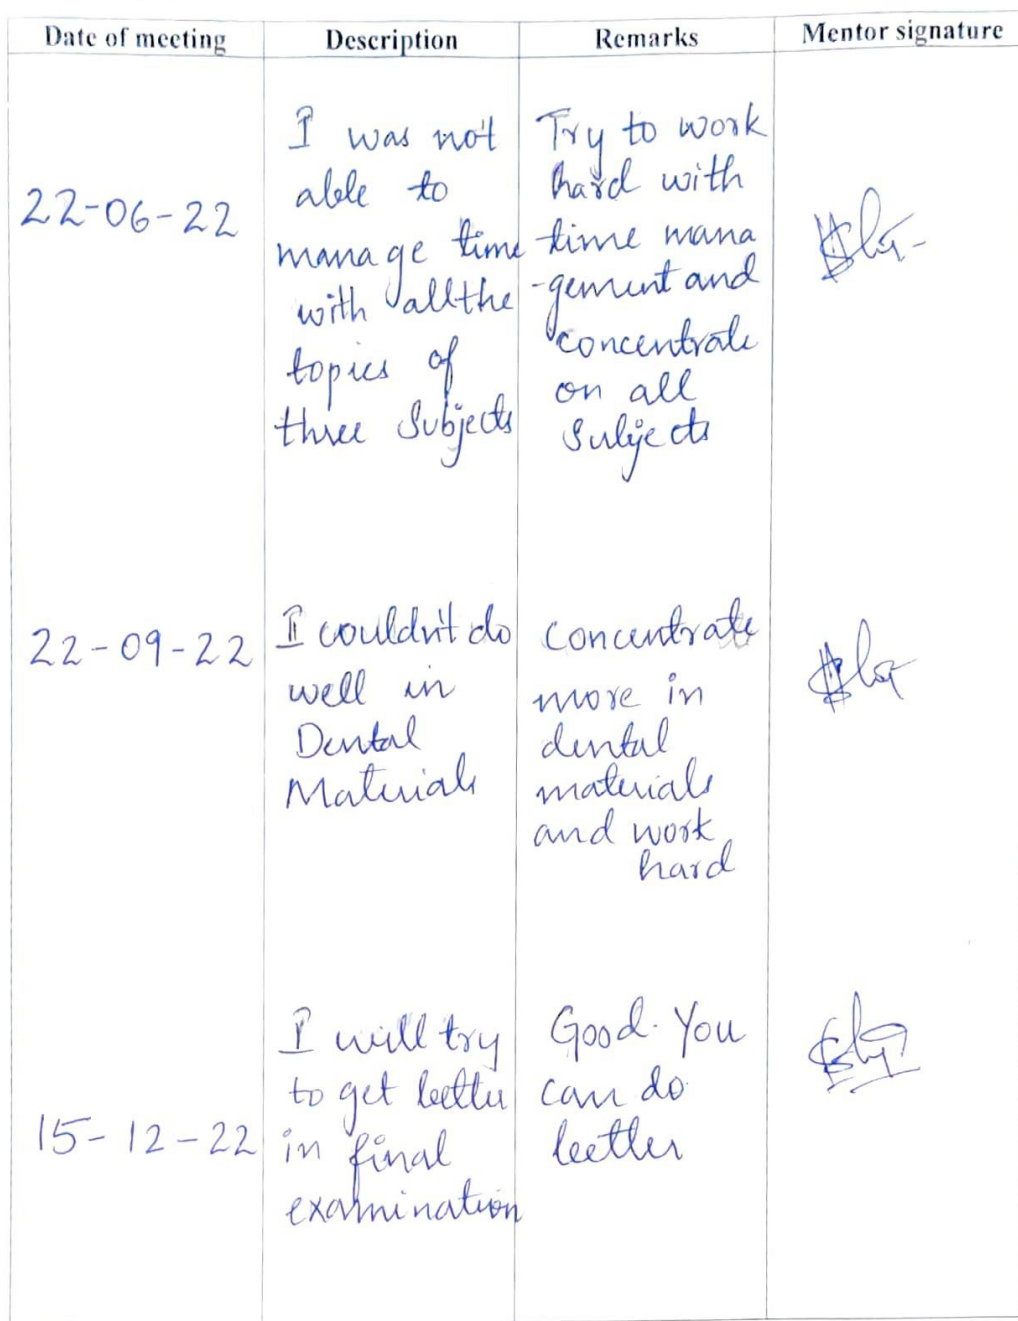 Date of meeting Description Remarks Mentor signature
22-06-22
I was not
able to
manage time
with all the
topics of
three Subjects
Try to work
hard with
time mana
-gement and
concentrate
on all
Subjects
22-09-22
I couldn't do
well in
Dental
Materials
Concentrate
more in
dental
materials
and work
hard
15-12-22
I will try
to get better
in final
examination
Good. You
can do
better